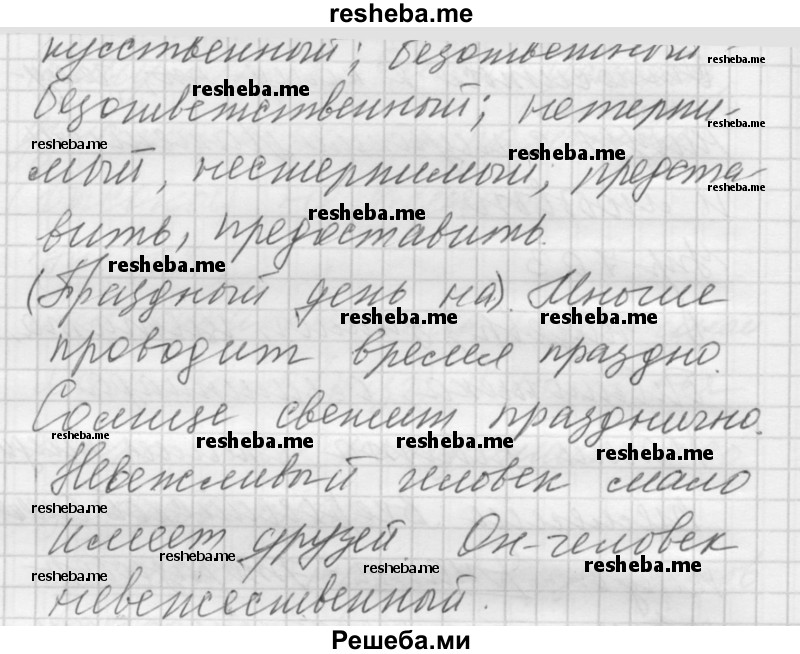 resheba.me
кусственный; безответный -
resheba.me
resheba.me
безответственный; нетерпи-
resheba.me
resheba.me
resheba.me
мый, нестерпимый; предста-
resheba.me
resheba.me
вить, предоставить.
resheba.me
(Праздный день на). Многие
resheba.me resheba.me
проводит время праздно.
Солнце светит празднично.
resheba.me resheba.me resheba.me
resheba.me
Невежливый человек мало
resheba.me
имеет друзей. Он-человек
resheba.me resheba.me resheba.me
resheba.me
невежественный.
Решеба.ми